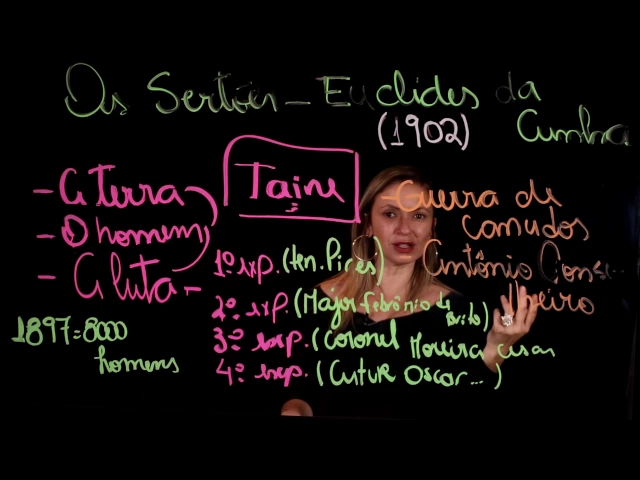 Os Sertões - Euclides da Cunha
(1902)
- A Terra
- O homem
- A luta -
Taine
1897 = 8000
homens
1º exp. (ten. Pires)
2º exp. (Major Febrônio de Brito)
3º exp. (Coronel Moreira Cesar
4º exp. (Cutur Oscar...)
- Guerra de
Canudos
Antônio Conse...
lheiro